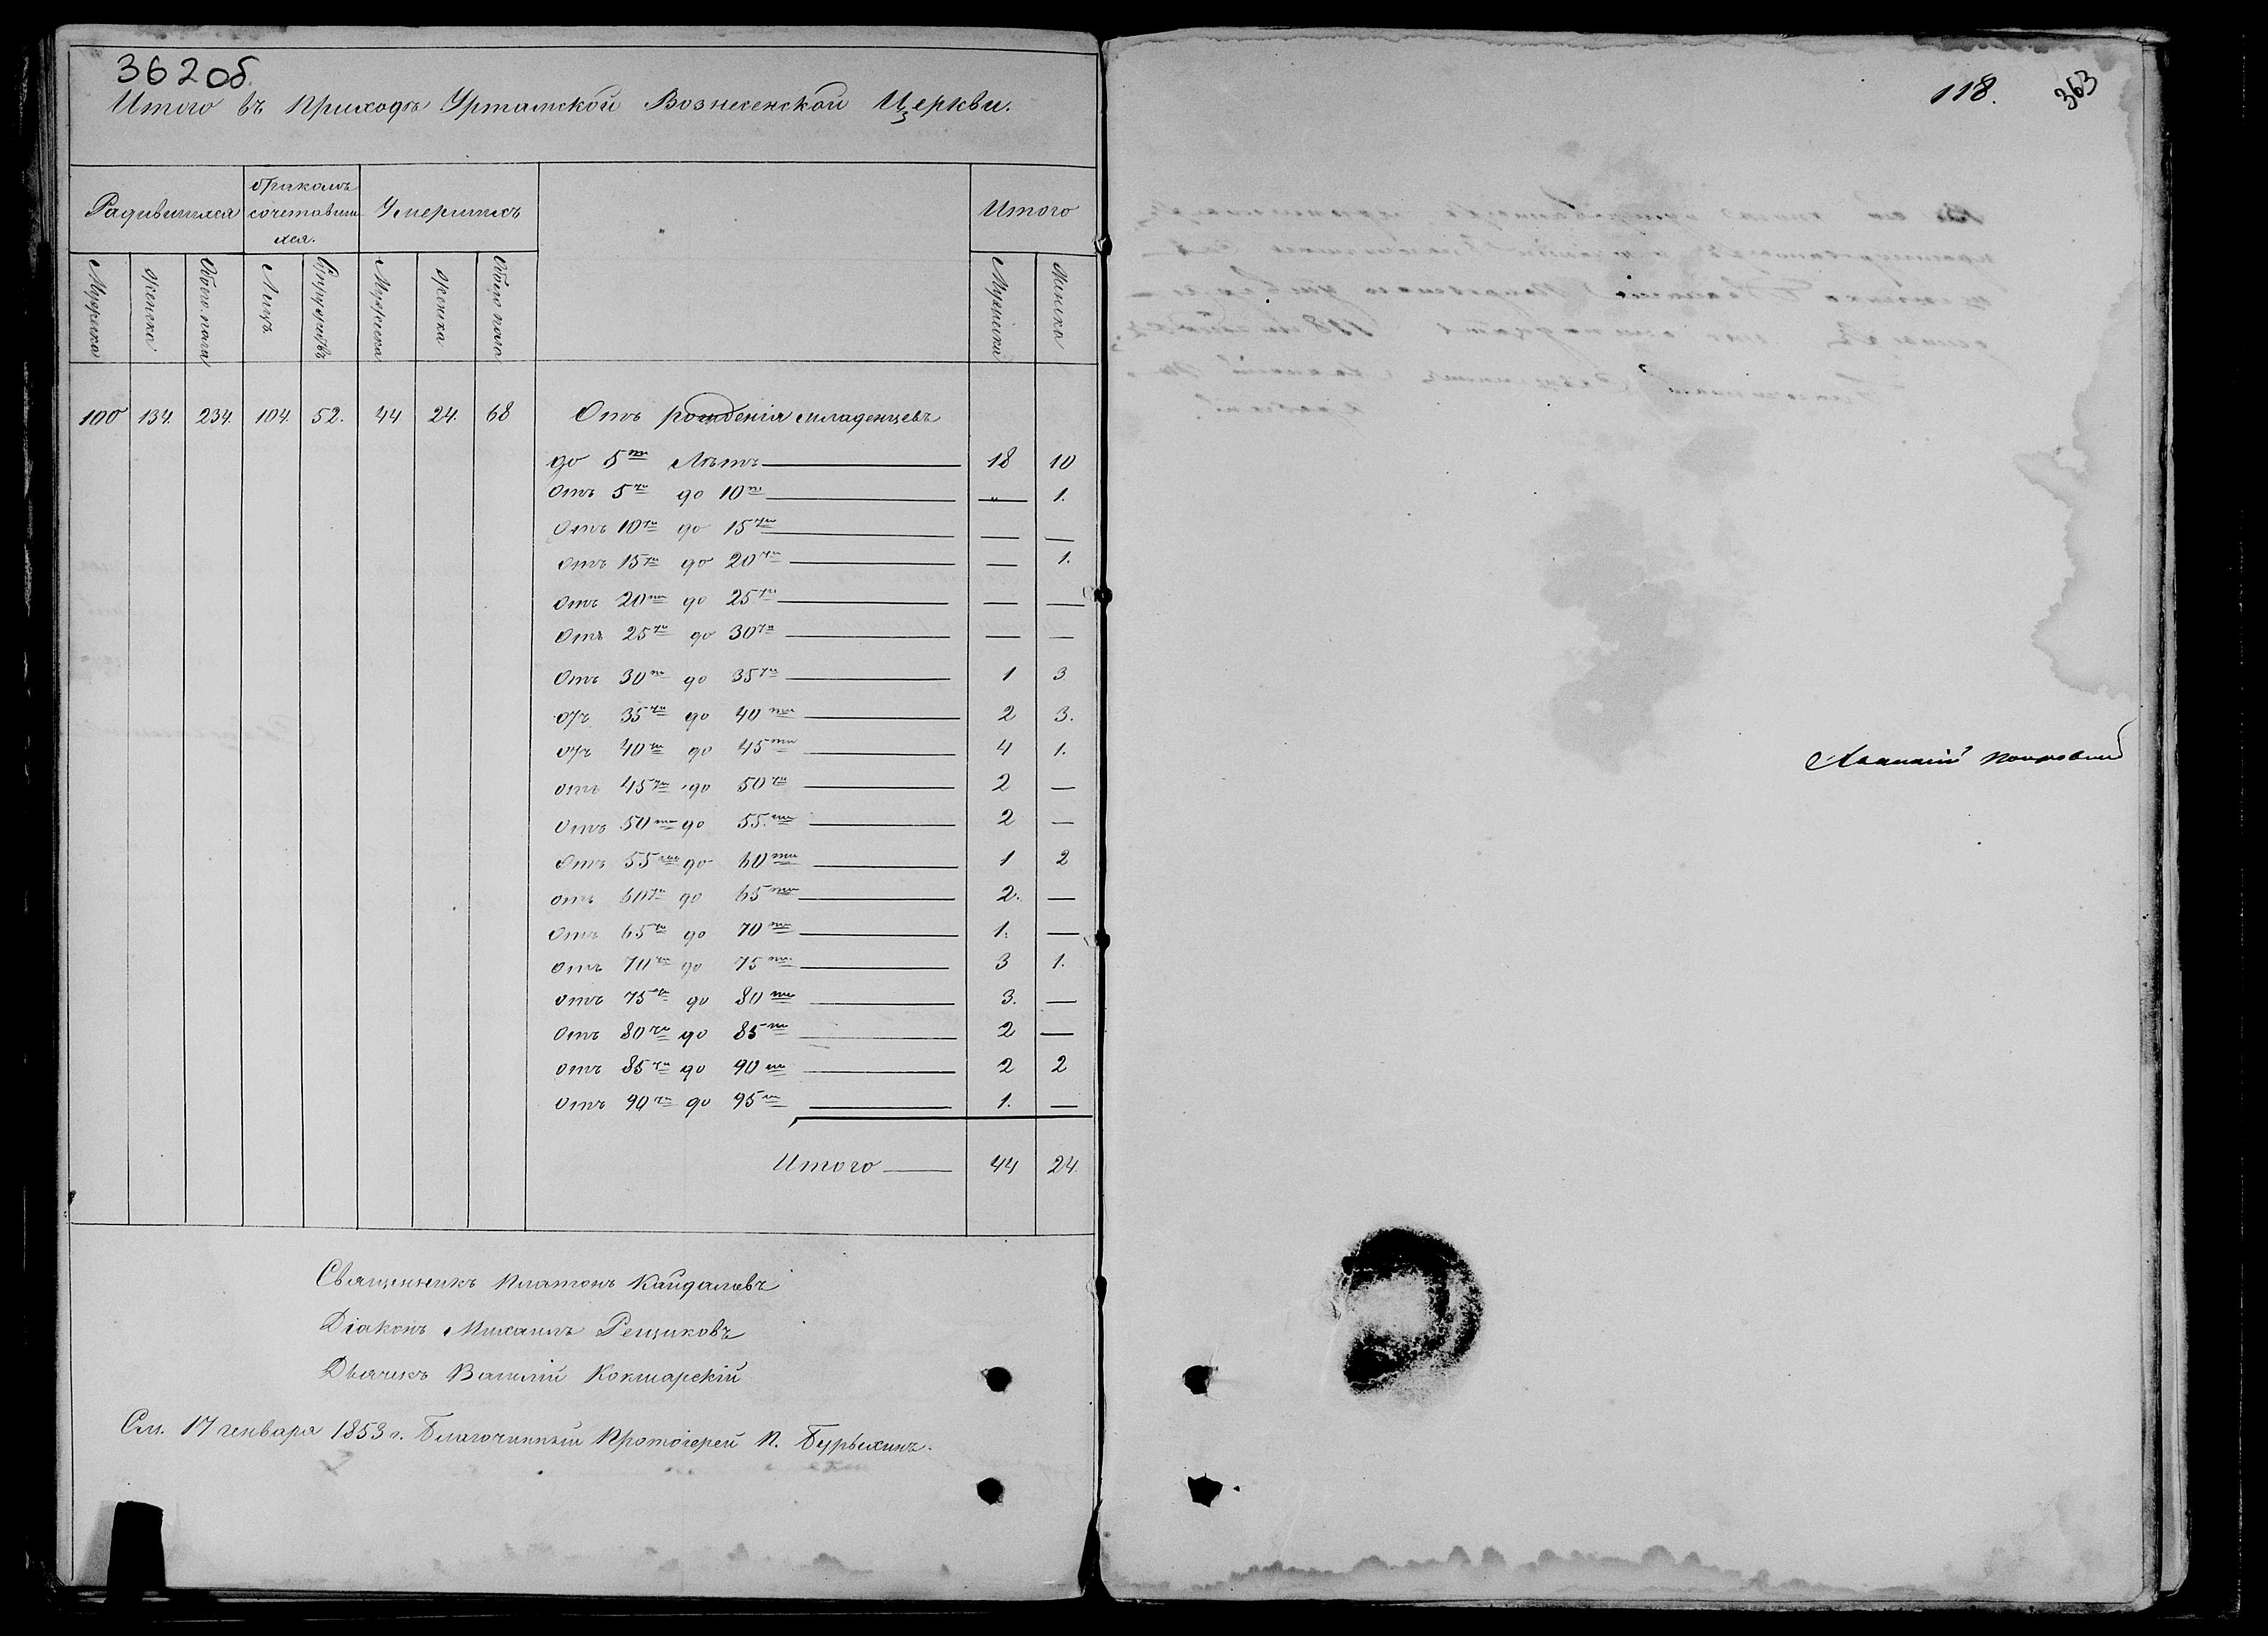 362об.
Итого въ приходѣ Уртамской Вознесенской Церкви.
Радившихся
бракомъ сочетавших
хся.
Умершихъ
Итого
Мужеска
Женска
Обоего пола
Лицъ
Супружествъ
Мужеска
Женска
Обоего пола
Мужеска
Женска
100 134. 234. 104. 52. 44 24. 68 Отъ рожденія младенцевъ
до 5ти Лѣтъ 18 10
Отъ 5ти до 10ти „ 1.
Отъ 10ти до 15ти — —
Отъ 15ти до 20ти — 1.
Отъ 20ти до 25ти — —
Отъ 25ти до 30ти — —
Отъ 30ти до 35ти 1 3
отъ 35ти до 40ти 2 3.
отъ 40ти до 45ти 4 1.
отъ 45ти до 50ти 2 —
Отъ 50ти до 55.ти 2 —
Отъ 55ти до 60ти 1 2
отъ 60ти до 65ти 2. —
Отъ 65ти до 70ти 1. —
Отъ 70ти до 75ти 3 1.
отъ 75ти до 80ти 3. —
Отъ 80ти до 85ти 2 —
отъ 85ти до 90ти 2 2
отъ 90ти до 95ти 1. —
Итого 44 24.
Священникъ Платонъ Кайдаловъ
Діаконъ Михаилъ Рещиковъ
Дьячекъ Василій Кокшарскій
См. 17 генваря 1853 г. Благочинный Протоіерей П. Бурыхинъ.
118. 363
Ананій Покровскій